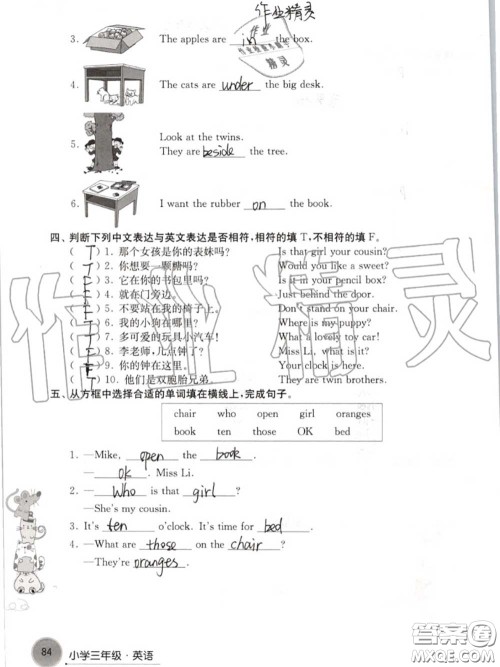 作业精灵
3. The apples are in the box.
4. The cats are under the big desk.
5. Look at the twins.
They are beside the tree.
6. I want the rubber on the book.
四、判断下列中文表达与英文表达是否相符,相符的填 T,不相符的填 F。
( T ) 1. 那个女孩是你的表妹吗? Is that girl your cousin?
( T ) 2. 你想要一颗糖吗? Would you like a sweet?
( F ) 3. 它在你的书包里吗? Is it in your pencil box?
( F ) 4. 就在门旁边。 Just behind the door.
( T ) 5. 不要站在我的椅子上。 Don't stand on your chair.
( T ) 6. 我的小狗在哪里? Where is my puppy?
( ) 7. 多么可爱的玩具小汽车! What a lovely toy car!
( F ) 8. 李老师,几点钟了? Miss Li, what is it?
( F ) 9. 你的钟在这里。 Your clock is here.
( T ) 10. 他们是双胞胎兄弟。 They are twin brothers.
五、从方框中选择合适的单词填在横线上,完成句子。
chair who open girl oranges
book ten those OK bed
1. —Mike, open the book.
— OK. Miss Li.
2. — Who is that girl?
—She's my cousin.
3. It's ten o'clock. It's time for bed.
4. —What are those on the chair?
—They're oranges.
84 小学三年级·英语
作业精灵
答案圈
MXQE.COM